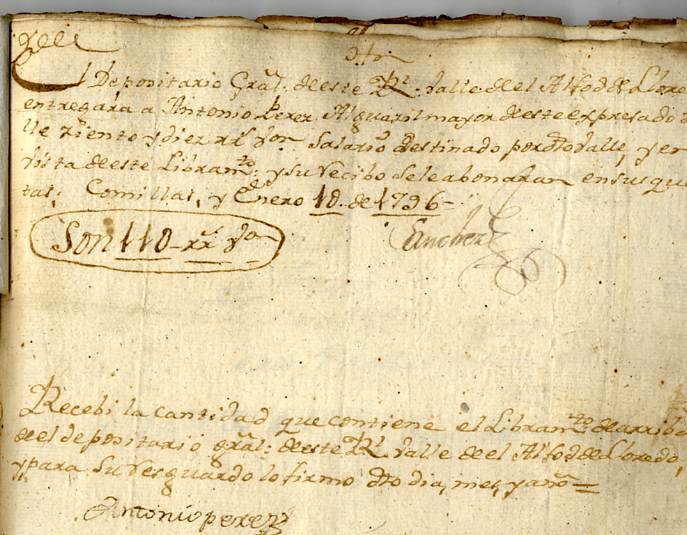 El Depositario Gral. de este Rl. Valle de el Alfoz de Llore
entregara a Antonio Perez Alguazil mayor de este expresado va
lle ziento y diez rrs. von Salario destinado por dho Valle, y en
vista de este Libramto. y su recibo se le abonaran en sus quen
tas; Comillas, y Enero 10. de 1796-
Son 110- rrs. von
Sanchez
Recebi la cantidad que contiene el Libramto. de arriba
de el depositario gral: de este Rl Valle de el Alfoz de Lloredo,
y para su resguardo lo firmo dho dia, mes, y año=
Antonio perez